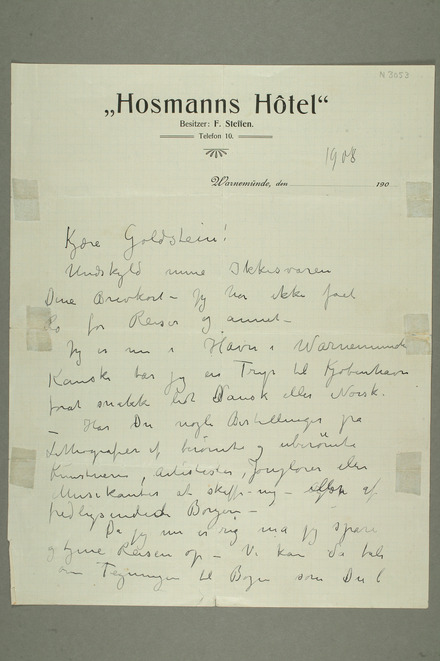 N.3053
„Hosmanns Hôtel“
Besitzer: F. Steffen.
Telefon 10.
1908
Warnemünde, den 190
Kjære Goldstein!
Undskyld mine Ikkesvaren
Dine Brevkort – Jeg har ikke faat
Ro for Reiser og annet –
Jeg er nu i Havn i Warnemunde
Kanske tar jeg en Trip til Kjøbenhavn
forat snakke lidt Dansk eller Norsk.
– Har Du nogle Bestillinger på
Lithografier af berömte og uberömte
Kunstnere, Artister, Jonglører eller
Musikanter at skaffe mig – eller af
fredlysende Borgere –
Da jeg nu er rig må jeg spare
og tjene Reisen op – Vi kan da tale
om Tegningen til Bogen som Du